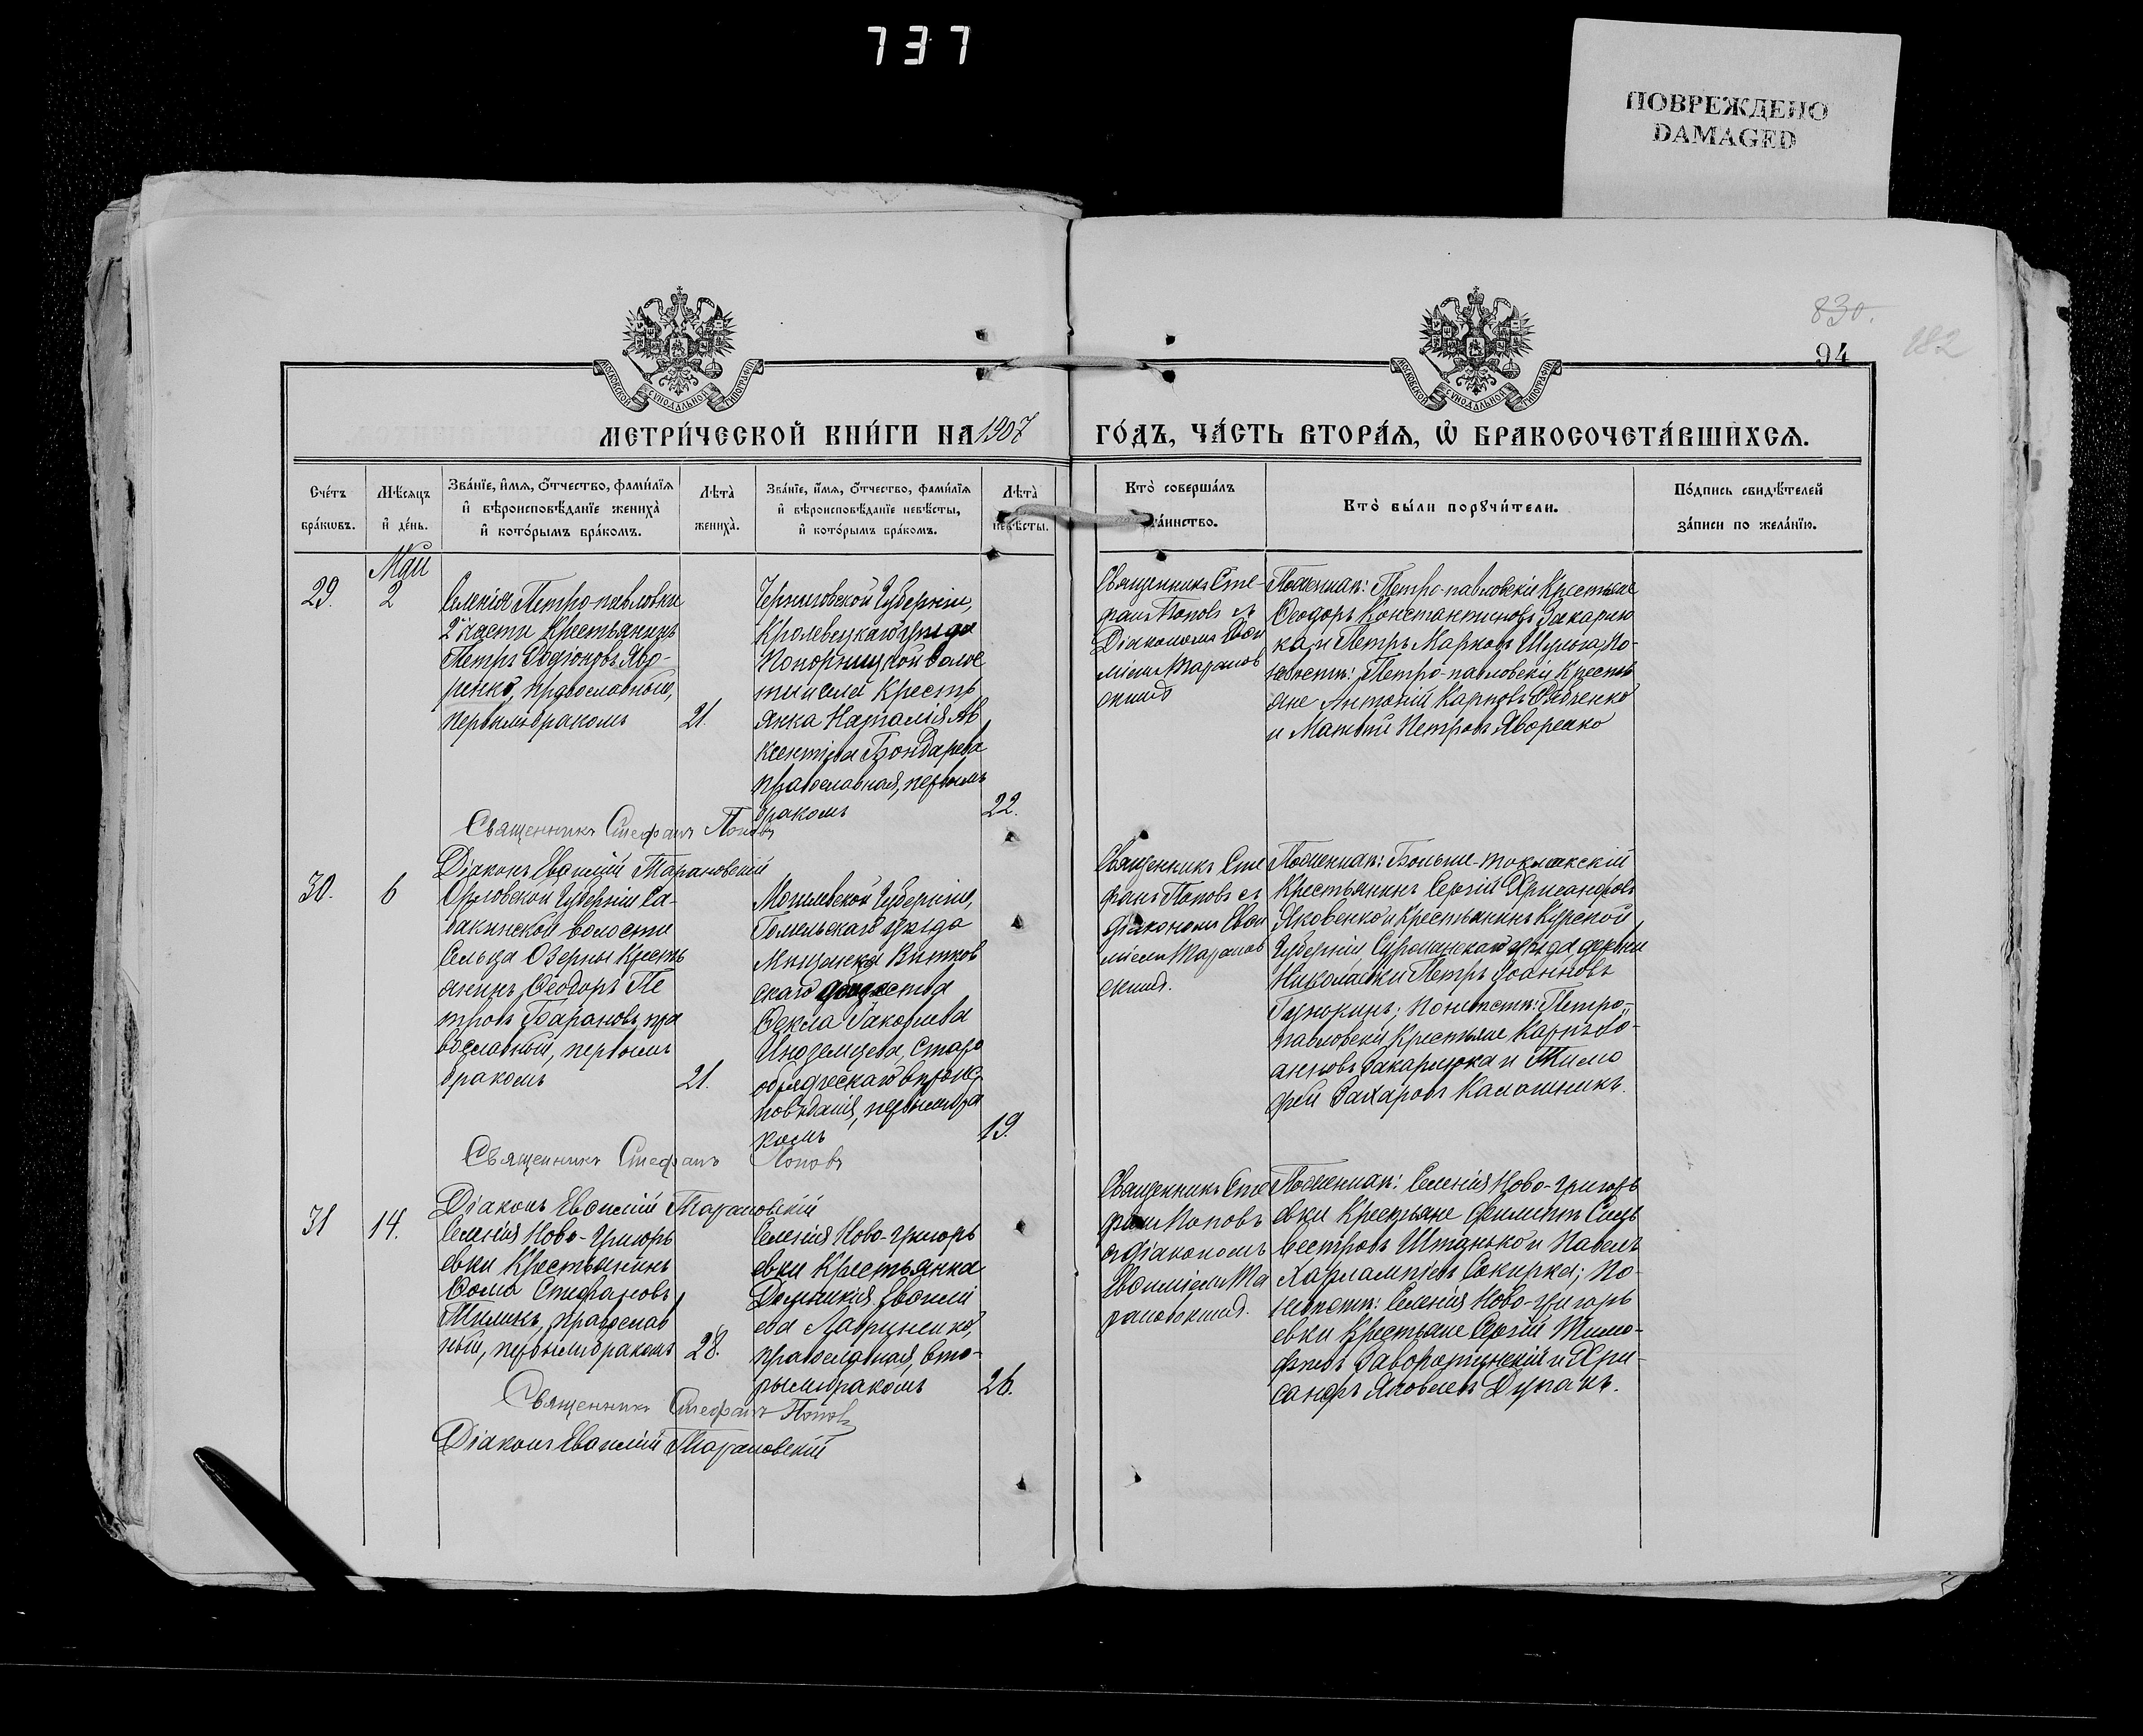 737
ПОВРЕЖДЕНО
DAMAGED
830.
94
182
МОСКОВСКОЙ СѴНОДАЛЬНОЙ ТИПОГРАФІИ
МОСКОВСКОЙ СѴНОДАЛЬНОЙ ТИПОГРАФІИ
МЕТРИ́ЧЕСКОЙ КНИ́ГИ НА 1907
ГО́ДЪ, ЧА́СТЬ ВТОРА́Ѧ, Ѡ҆ БРАКОСОЧЕТА́ВШИХСѦ.
Сче́тъ
бра́кѡвъ.
Мѣ́сяцъ
и҆ де́нь.
Зва́нїе, и҆́мѧ, ѻ҆́тчество, фамі́лїѧ
и҆ вѣроисповѣ́данїе жениха̀
и҆ кото́рымъ бра́комъ.
Лѣта̀
жениха̀.
Зва́нїе, и҆́мѧ, ѻ҆́тчество, фамі́лїѧ
и҆ вѣроисповѣ́данїе невѣ́сты,
и҆ кото́рымъ бра́комъ.
Лѣта̀
невѣ́сты.
Кто̀ соверша́лъ
та́инство.
Кто̀ бы́ли порꙋчи́тели.
По́дпись свидѣ́телей
за́писи по жела́нїю.
Май
29.
2
Селенія Петро-павловки
2й части Крестьянинъ
Петръ Родіоновъ Яво-
ренко, православный,
первымъ бракомъ
21.
Черниговской Губерніи,
Кролевецкаго уѣзда
Понорницкой воло
сти села Кресть
янка Наталія Ав
ксентіева Бондарева
православная, первымъ
бракомъ
22.
Священникъ Сте-
фанъ Поповъ съ
Діакономъ Евѳи
міемъ Таранов
скимъ
По женихѣ: Петро-павловскіе Крестьяне
Ѳеодоръ Константиновъ Захарію
ка и Петръ Марковъ Шульга, По-
невѣстѣ: Петро-павловскіе Кресть
яне Антоній Карповъ Рябченко
и Матѳій Петровъ Яворенко
Священникъ Стефанъ Поповъ
Діаконъ Евѳимій Тарановскій
30.
6
Орловской Губерніи Са-
бакинской волости
Сельца Озерны Кресть
янинъ Ѳеодоръ Пе
тровъ Барановъ, пра
вославный, первымъ
бракомъ
21.
Могилевской Губерніи,
Гомельскаго уѣзда
Мѣщанка Вѣтков
скаго общества
Ѳекла Іаковлева
Иноземцева, Старо
обрядческаго вѣроис
повѣданія, первымъ бра
комъ
19.
Священникъ Сте
фанъ Поповъ съ
діакономъ Евѳи
міемъ Таранов
скимъ.
По женихѣ: Больше-токмакскій
Крестьянинъ Сергій Хрисанфовъ
Яковенко и Крестьянинъ Курской
Губерніи, уѣзда деревни
Николаевки Петръ Іоанновъ
; По невѣстѣ: Петро-
павловскіе Крестьяне Карпъ Іо-
анновъ Захарлюка и Тимо
фей Захаровъ Калашникъ.
Священникъ Стефанъ Поповъ
Діаконъ Евѳимій Тарановскій
31
14.
Селенія Ново-Григорь
евки Крестьянинъ
Ѳома Стефановъ
, православ
ный, первымъ бракомъ
28.
Селенія Ново-Григорь
евки Крестьянка
Домникія Евѳимі
ева Лавриненко,
православная, вто-
рымъ бракомъ
26.
Священникъ Сте
фанъ Поповъ
съ діакономъ
Евѳиміемъ Та
рановскимъ.
По женихѣ: Селенія Ново-Григорь
евки Крестьяне Филиппъ Силь
вестровъ Штанько и Павелъ
Харлампіевъ Сокирка; По-
невѣстѣ: Селенія Ново-Григорь
евки Крестьяне Сергій Тимо-
феевъ Заворотинскій и Хри-
санфъ Яковлевъ Дупакъ.
Священникъ Стефанъ Поповъ
Діаконъ Евѳимій Тарановскій